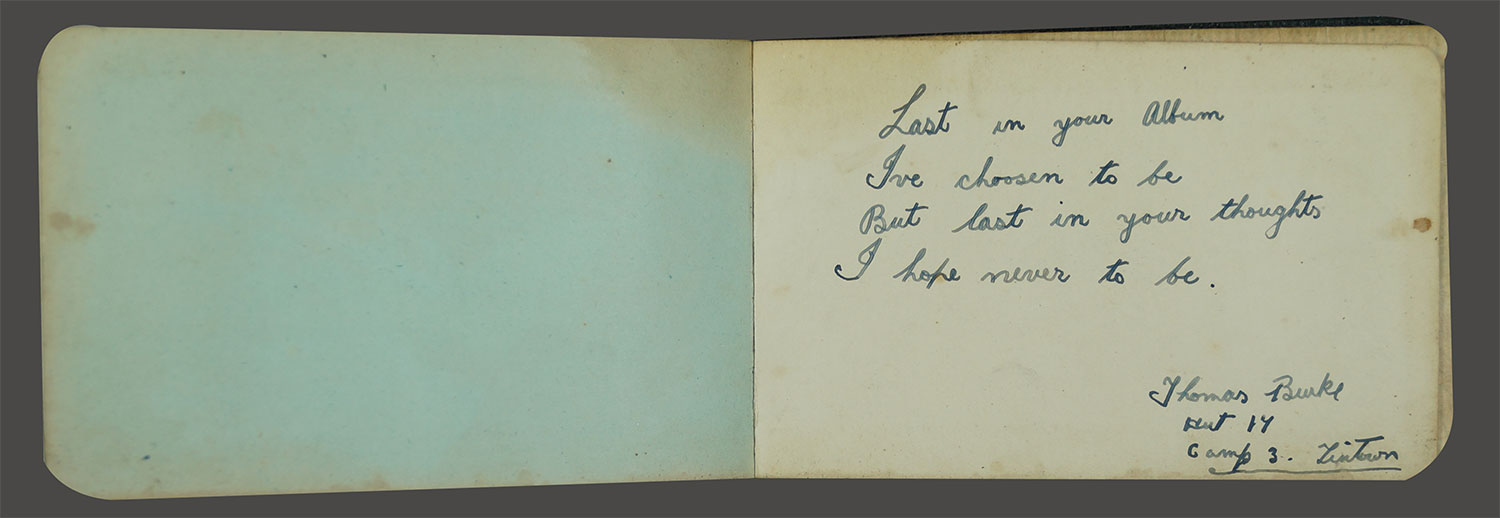 Last in your Album
I've choosen to be
But last in your thoughts
I hope never to be.
Thomas Burke
Hut 14
Camp 3. Tintown